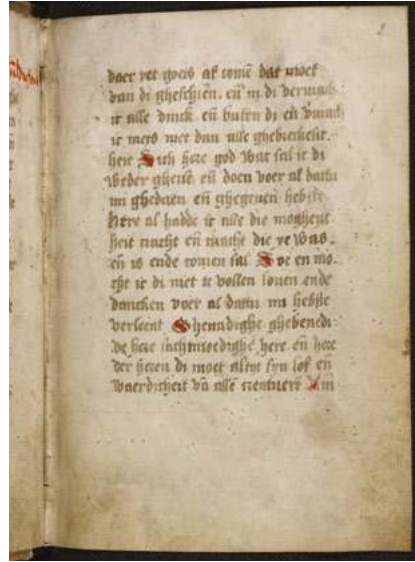 2
daer yet goets af come dat moet
van di gheschien. en in di vermach
ic alle dinck. en buten di en vmach
ic niets niet dan alle ghebreckelic
heit Och here god wat sal ic di
weder gheue en doen voer al dattu
mi ghedaen en ghegeuen hebste
here al hadde ic alle die moghent
heit macht en die ye was.
en is ende comen sal Soe en mo
cht ic di niet te vollen louen ende
dancken voer al dattu mi hebste
verleent Ghenadighe ghebenedi
de here sachtmoedighe here en here
der heren di moet altijt syn lof en
waerdicheit va alle creatuere Am